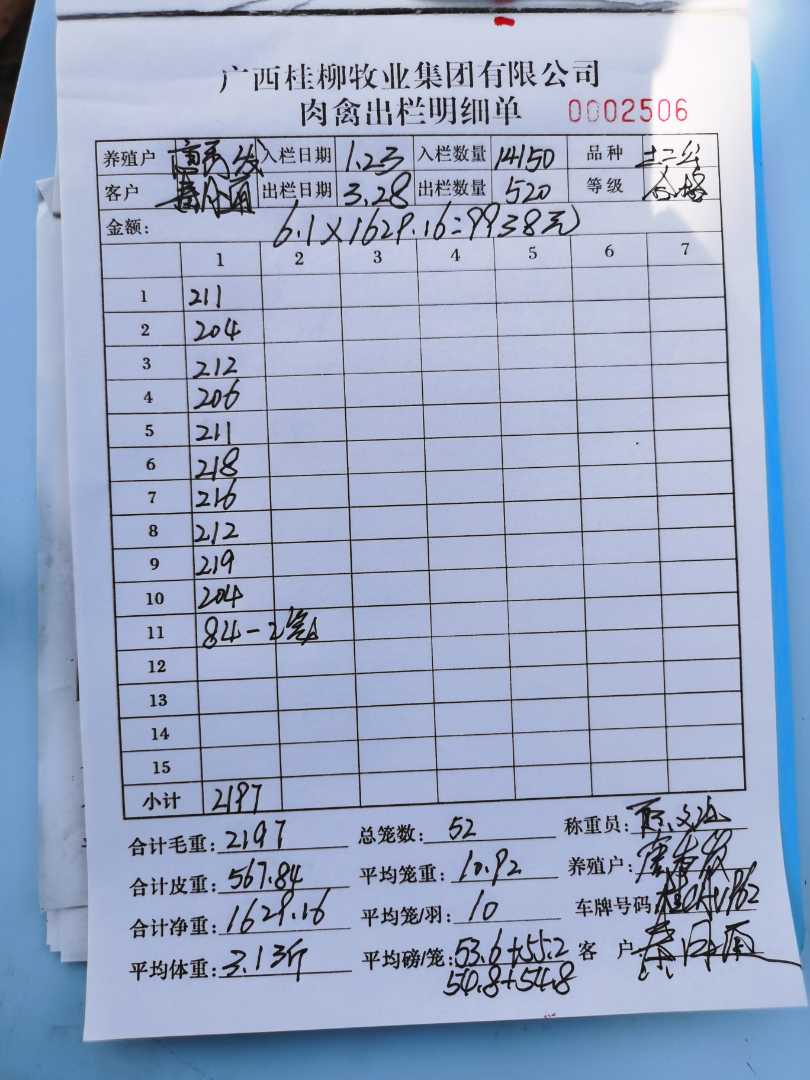 广西桂柳牧业集团有限公司
肉禽出栏明细单 0002506
养殖户 入栏日期 1.23 入栏数量 14150 品种
客户 出栏日期 3.28 出栏数量 520 等级 合格
金额: 6.1×1629.16=9938元
1 2 3 4 5 6 7
1 211
2 204
3 212
4 206
5 211
6 218
7 216
8 212
9 219
10 204
11 84-2笼
12
13
14
15
小计 2197
合计毛重: 2197 总笼数: 52 称重员:
合计皮重: 567.84 平均笼重: 10.92 养殖户:
合计净重: 1629.16 平均笼/羽: 10 车牌号码
平均体重: 3.13斤 平均磅/笼: 53.6+55.2 客 户:
54.8+54.8